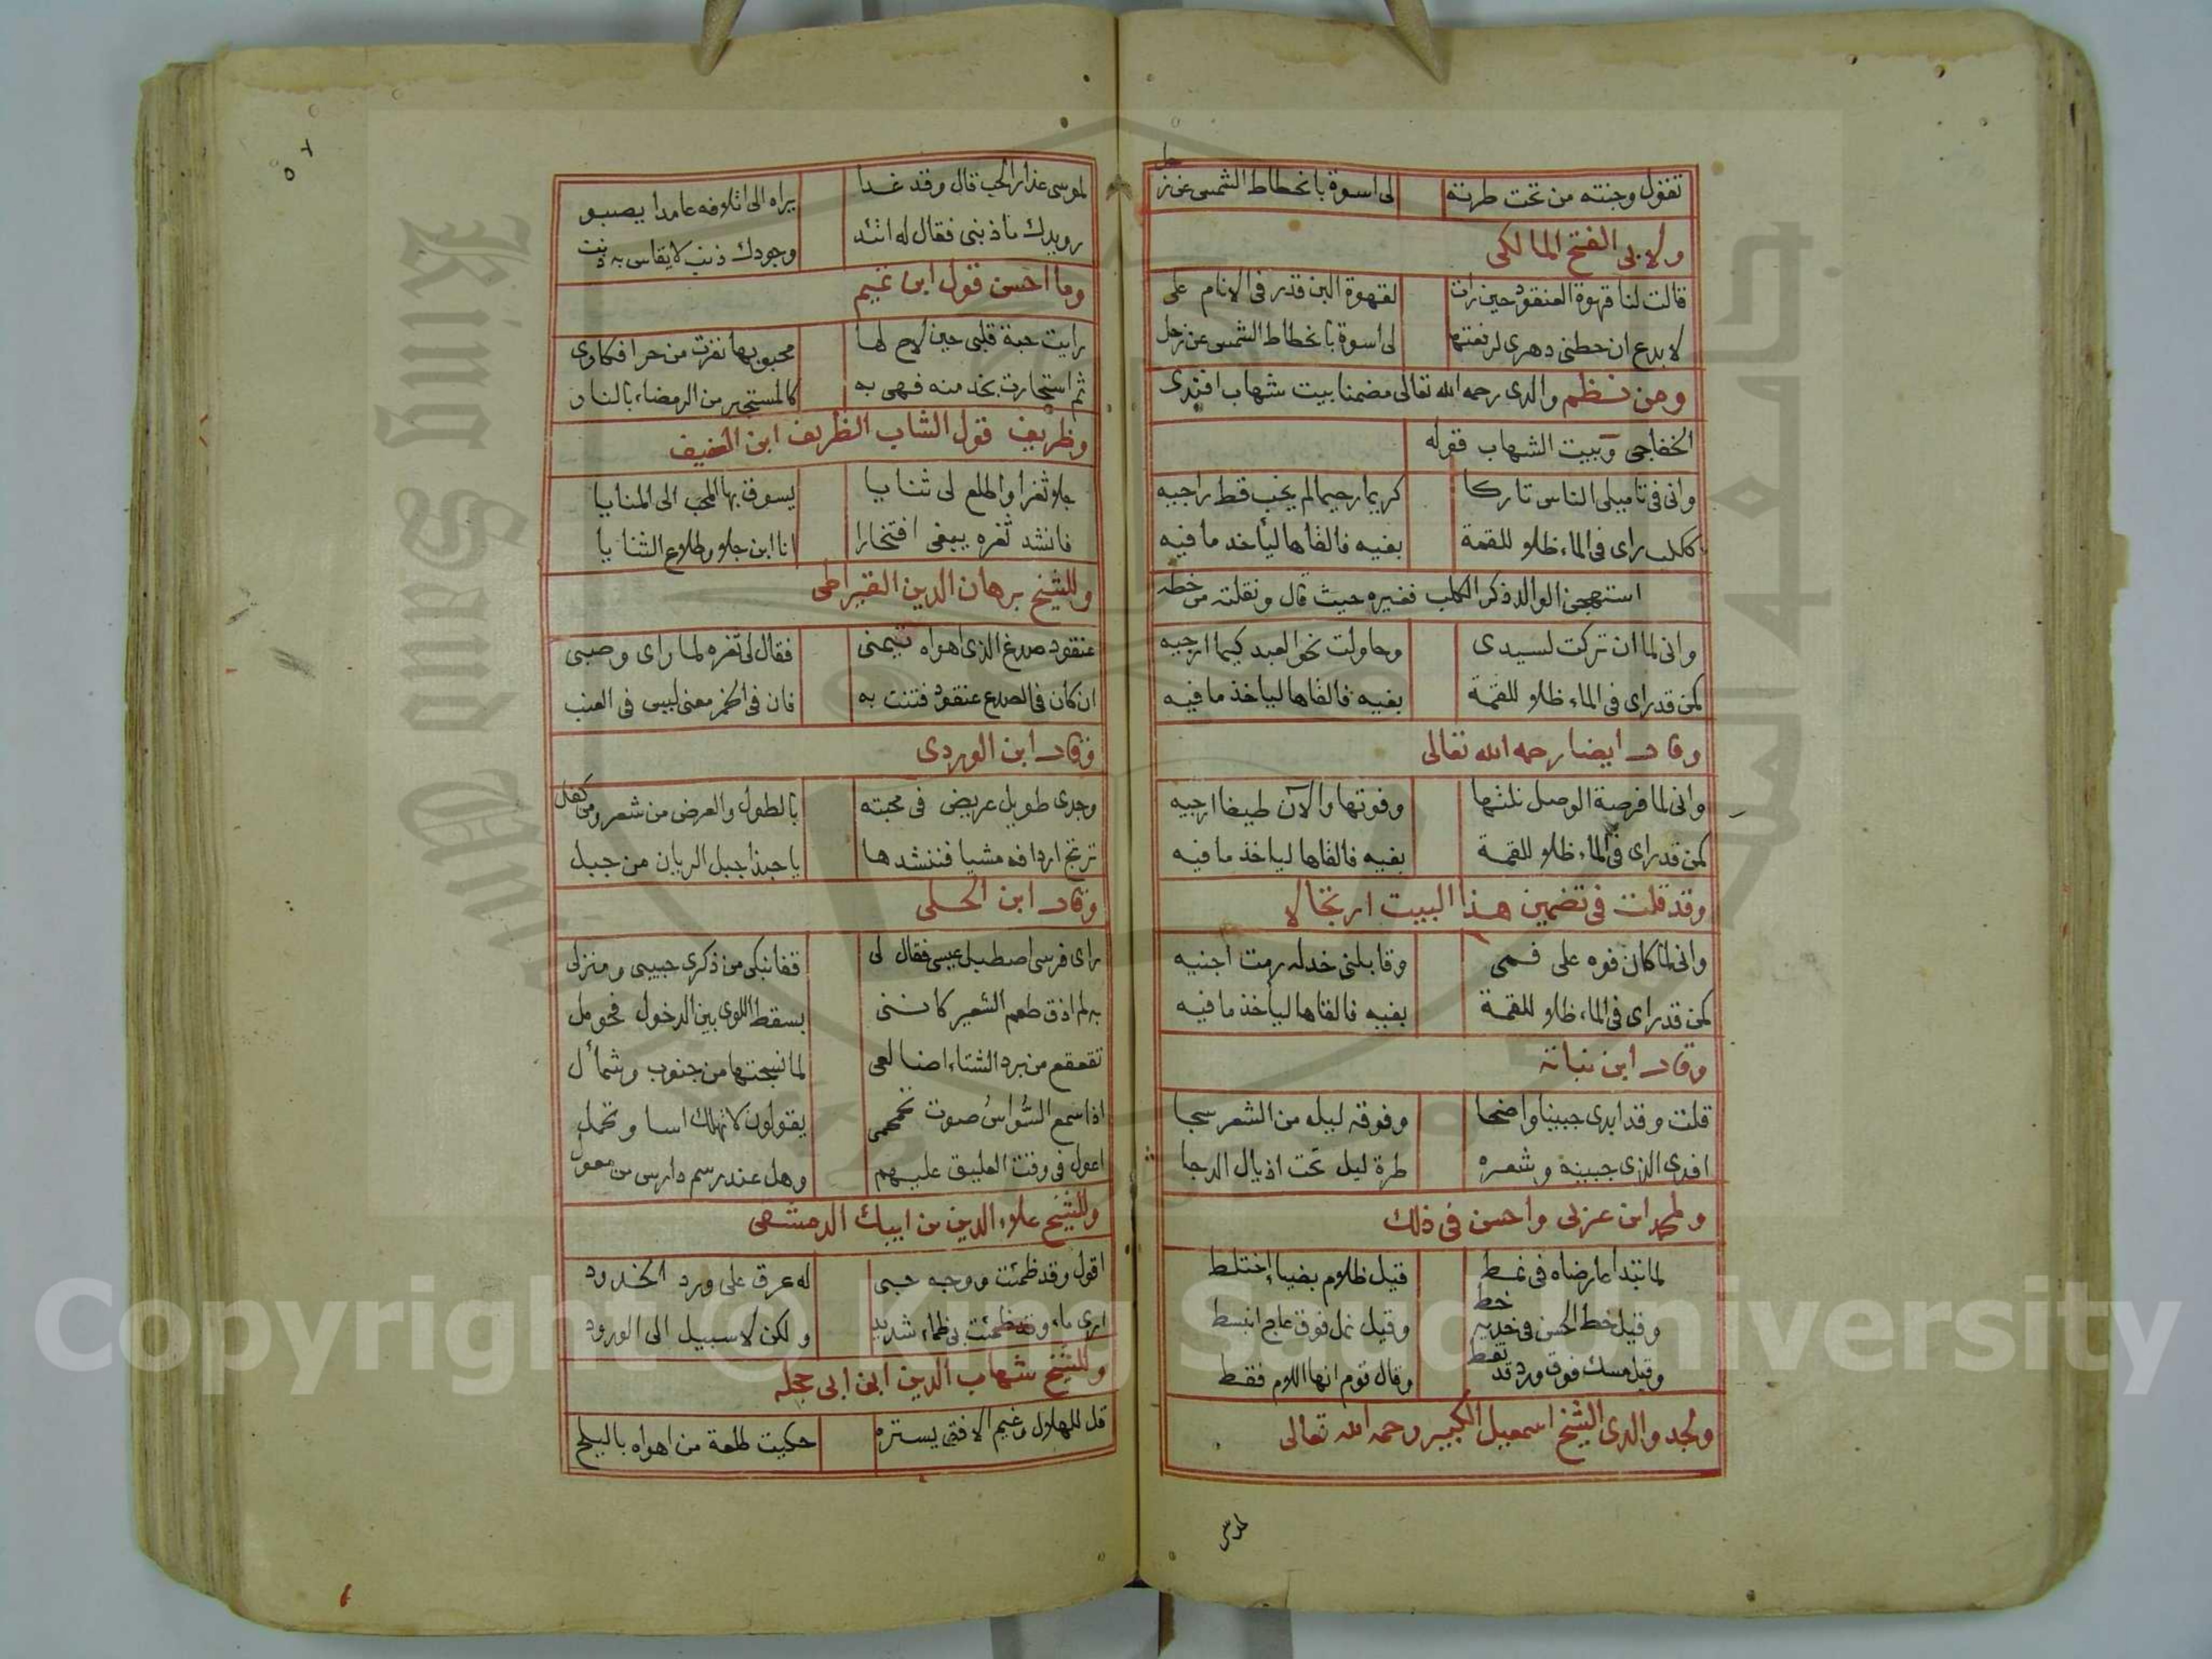 تقول وجنته من تحت طرته لى اسوة بانحطاط الشمس عن زحل
ولابى الفتح المالكى
قالت لنا قهوة العنقود حين رات لقهوة البن قدر فى الانام على
لا بدع ان حطنى دهرى لرفعتها لى اسوة بانحطاط الشمس عن زحل
ومن نظم والدى رحمه الله تعالى مضمنا بيت شهاب افندى
الخفاجى وبيت الشهاب قوله
وانى فى تاميلى الناس تاركا كريما رحيما لم يخب قط راجيه
ككلب راى فى الماء ظلا للقمة بفيه فالقاها ليأخد ما فيه
استهجن الوالد ذكر الكلب فغيره حيث قال ونقلته من خطه
وانى لما ان تركت لسيدى وحاولت نحو العبد كيما ارجيه
كمن قد راى فى الماء ظلا للقمة بفيه فالقاها لياخذ ما فيه
وقال ايضا رحمه الله تعالى
وانى لما فرصة الوصل نلتها وفوتها والآن طيفا ارجيه
كمن قد راى فى الماء ظلا للقمة بفيه فالقاها لياخذ ما فيه
وقد قلت فى تضمين هذا البيت ارتجالا
وانى لما كان فوه على فمى وقابلنى خد له رمت اجنيه
كمن قد راى فى الماء ظلا للقمة بفيه فالقاها ليأخذ ما فيه
وقال ابن نباتة
قلت وقد ابدى جبينا واضحا وفوقه ليل من الشعر سجا
افدى الذى جبينه وشعره طرة ليل تحت اذيال الدجا
ولمحمد ابن عربى واحسن فى ذلك
لما تبدا عارضاه فى نمط قيل ظلام بضياء اختلط
وقيل خط الحسن فى خديه خط وقيل نمل فوق عاج انبسط
وقيل مسك فوق ورد قد نقط وقال قوم انها اللام فقط
ولجد والدى الشيخ اسمعيل الكبير رحمه الله تعالى
لموسى
لموسى عذار الحب قال وقد غدا يراه الى اتلافه عامدا يصبو
رويدك ما ذنبى فقال له اتئد وجودك ذنب لا يقاس به ذنب
وما احسن قول ابن تميم
رايت حبة قلبى حين لاح لها محبوبها نفرت من حر افكارى
ثم استجارت بخد منه فهى به كالمستجير من الرمضاء بالنار
وظريف قول الشاب الظريف ابن العفيف
جلا ثغرا واطلع لى ثنايا يسوق بها المحب الى المنايا
فانشد ثغره يبغى افتخارا انا ابن جلا وطلاع الثنايا
وللشيخ برهان الدين القيراطى
عنقود صدغ الذى اهواه تيمنى فقال لى ثغره لما راى وصبى
ان كان فى الصدغ عنقود فتنت به فان فى الخمر معنى ليس فى العنب
وقال ابن الوردى
وجدى طويل عريض فى محبته بالطول والعرض من شعر ومن كفل
ترتج اردافه مشيا فننشدها يا حبذا جبل الريان من جبل
وقال ابن الحلى
راى فرسى اصطبل عيسى فقال لى قفا نبكى من ذكرى حبيبى ومنزلى
به لم اذق طعم الشعير كاننى بسقط اللوى بين الدخول فحومل
تقعقع من برد الشتاء اضالعى لما نسجتها من جنوب وشمأل
اذا سمع السواس صوت تحمحمى يقولون لا تهلك اسا وتحمل
اعول فى وقت العليق عليهم وهل عند رسم دارس من معول
وللشيخ علاء الدين بن ايبك الدمشقى
اقول وقد ظمئت ووجه حبى له عرق على ورد الخدود
ارى ماء وقد ظمئت بى ظماء شديد ولكن لا سبيل الى الورود
وللشيخ شهاب الدين ابن ابى حجله
قل للهلال وغيم الافق يستره حكيت طلعة من اهواه بالبلج
Copyright © King Saud University